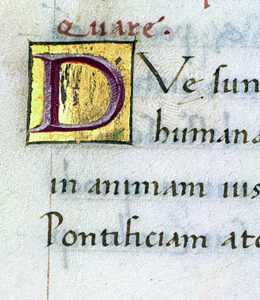 Quare.
D Ve sun
humana
in animam ius
Pontificiam atq